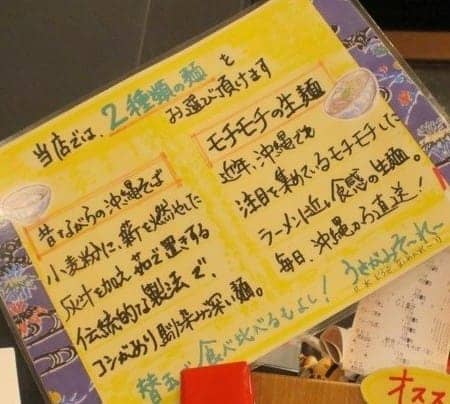 当店では、2種類の麺を
お選び頂けます
モチモチの生麺
近年、沖縄でも
注目を集めているモチモチした
ラーメンに近い食感の生麺。
毎日、沖縄から直送!
昔ながらの沖縄そば
小麦粉に、薪を燃やした
灰汁を加え茹で置きする
伝統的な製法で、
コシがあり馴染み深い麺。
替玉で食べ比べるもよし!
うさがみそ〜れ〜
オスス